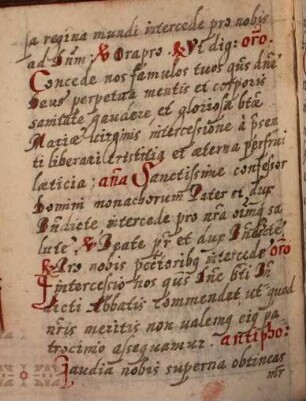 ta regina mundi intercede pro nobis
ad Dnm; ℣ Ora pro. ℟ Vt dig: oro.
Concede nos famulos tuos qs dne
Deus perpetua mentis et corporis
sanitate gaudere et gloriosa btæ
Mariæ virginis intercesione à præsen
ti liberari tristitia et æterna perfrui
læticia; aña Sanctissime confessor
Domini monachorum Pater et dux
Bndicte intercede pro nra oimq sa
lute ℣ Beate pr et dux Bndicte
℟ Pro nobis pctoribq intercede oro
Intercessio nos qs Dne bti Bn
dicti Abbatis commendet ut quod
nris meritis non valemq eiq pa
trocinio assequamur. antipho:
Gaudia nobis superna obtineas
mr